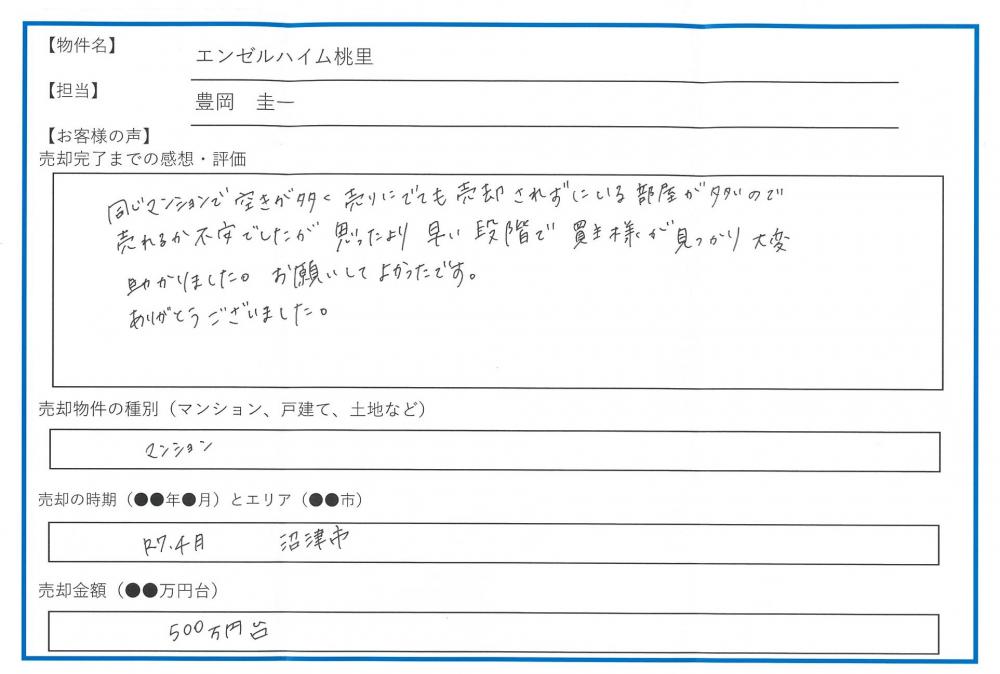 【物件名】
エンゼルハイム桃里
【担当】
豊岡　圭一
【お客様の声】
売却完了までの感想・評価
同じマンションで空きが多く売りにでても売却されずにいる部屋が多いので
売れるか不安でしたが思ったより早い段階で買主様が見つかり大変
助かりました。お願いしてよかったです。
ありがとうございました。
売却物件の種別（マンション、戸建て、土地など）
マンション
売却の時期（●●年●月）とエリア（●●市）
R7.4月　沼津市
売却金額（●●万円台）
500万円台